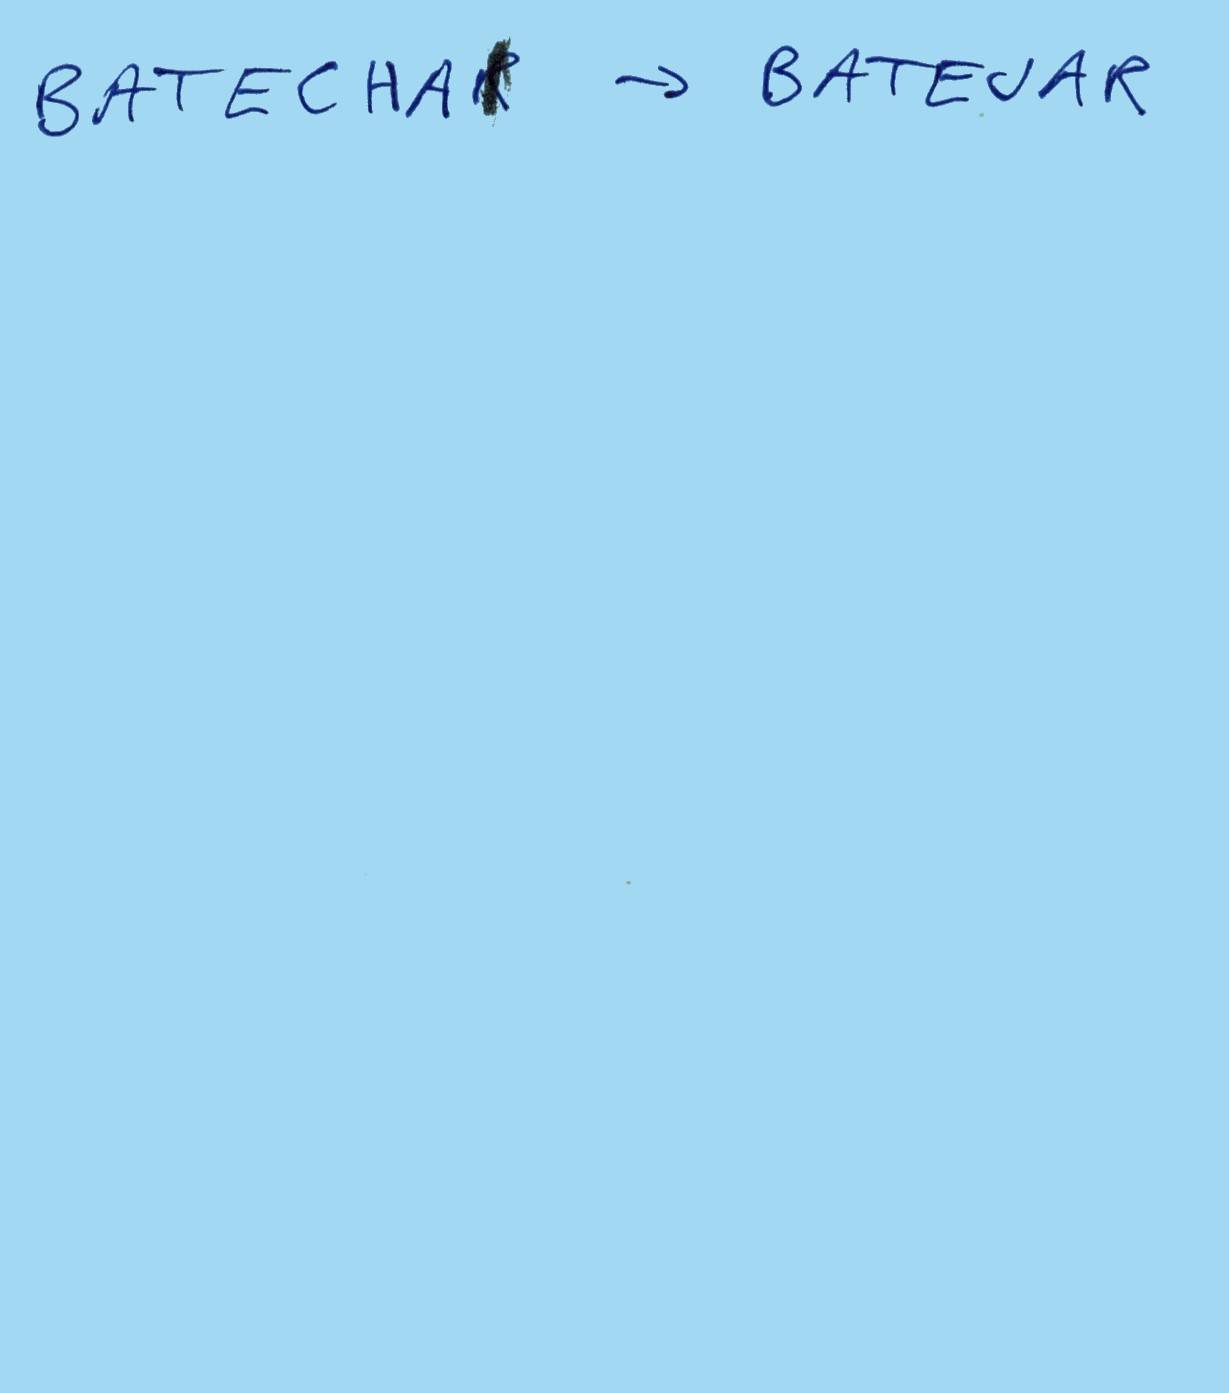 BATECHAR → BATEJAR